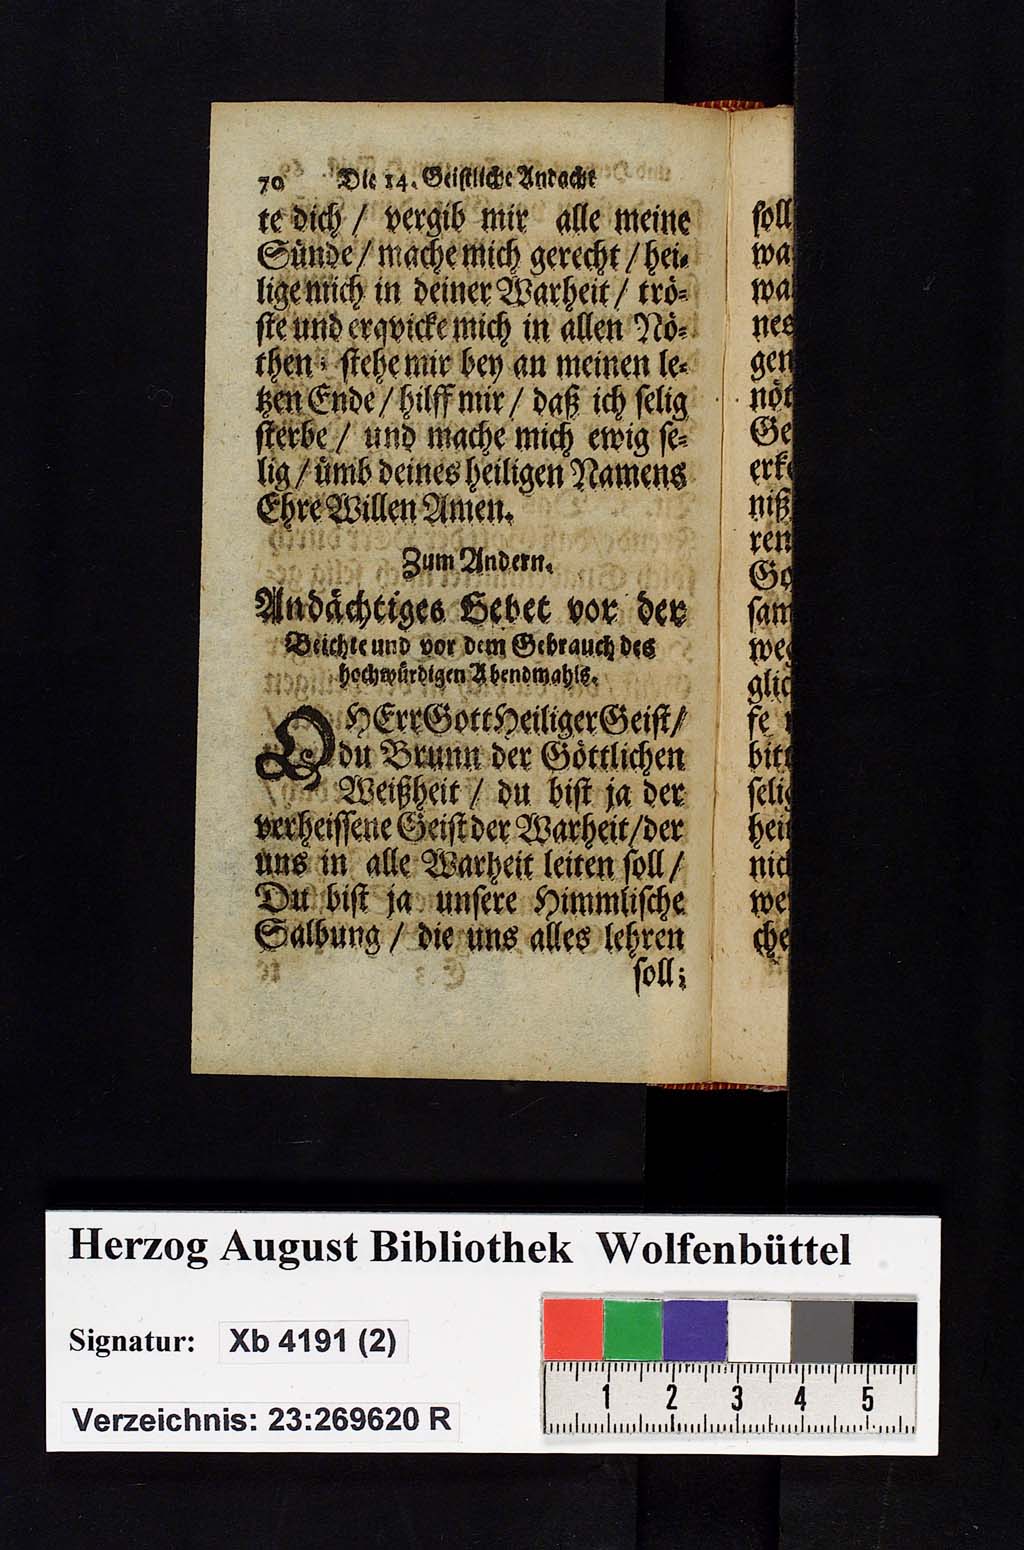 70 Die 14. Geistliche Andacht
te dich / vergib mir alle meine
Sünde / mache mich gerecht / hei-
lige mich in deiner Warheit / trö-
ste und erqvicke mich in allen Nö-
then; stehe mir bey an meinen le-
tzen Ende / hilff mir / daß ich selig
sterbe / und mache mich ewig se-
lig / ümb deines heiligen Namens
Ehre Willen Amen.
Zum Andern.
Andächtiges Gebet vor der
Beichte und vor dem Gebrauch des
hochwürdigen Abendmahls.
O HErr Gott Heiliger Geist /
du Brunn der Göttlichen
Weißheit / du bist ja der
verheissene Geist der Warheit / der
uns in alle Warheit leiten soll /
Du bist ja unsere Himmlische
Salbung / die uns alles lehren
soll;
soll
wa
wa
nes
gen
nöt
Ge
erke
niß
ren
Go
sam
weg
glic
fe
bitt
selig
hei
nich
we
che
Herzog August Bibliothek Wolfenbüttel
Signatur: Xb 4191 (2)
Verzeichnis: 23:269620 R
1 2 3 4 5